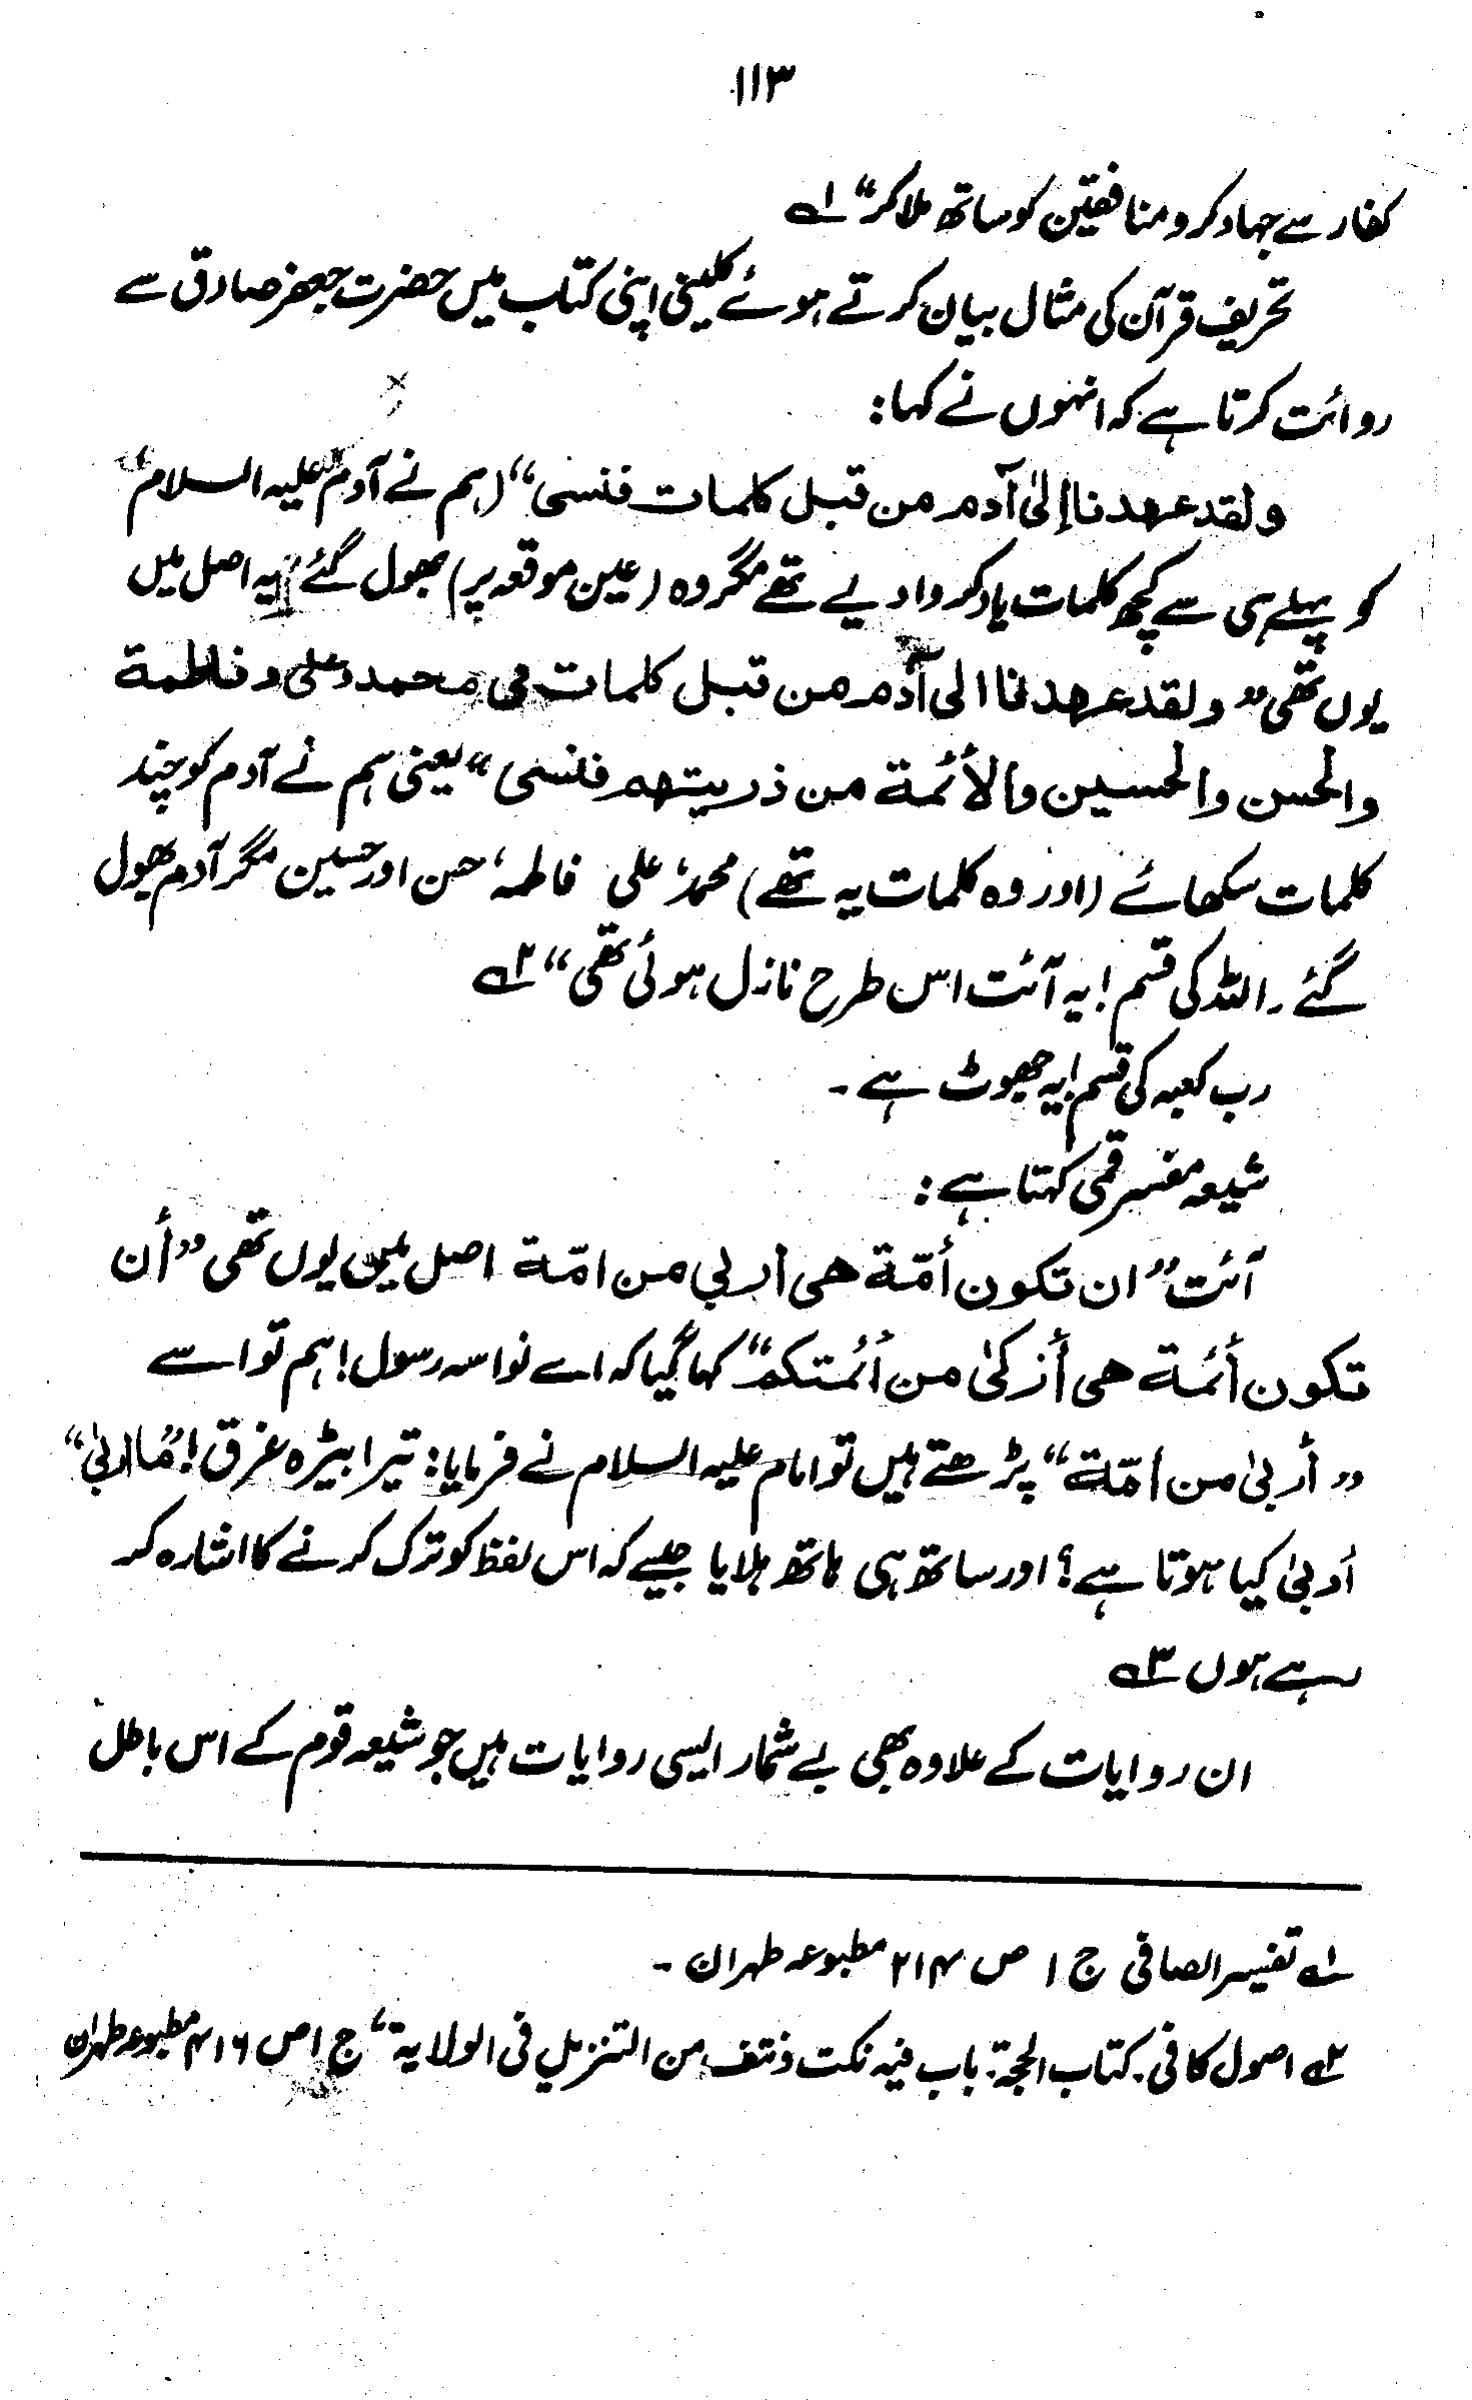 ۱۱۳
کفار سے جہاد کرو منافقین کو ساتھ ملا کر“ ۱ے
تحریف قرآن کی مثال بیان کرتے ہوئے کلینی اپنی کتاب میں حضرت جعفر صادق سے
روائت کرتا ہے کہ انہوں نے کہا:
ولقد عهدنا إلیٰ آدم من قبل کلمات فنسی“ (ہم نے آدم علیہ السلام
کو پہلے ہی سے کچھ کلمات یاد کروا دیے تھے مگر وہ (عین موقعہ پر) بھول گئے یہ اصل میں
یوں تھی ”ولقد عهدنا الی آدم من قبل کلمات فی محمد وعلی وفاطمة
والحسن والحسین والأئمة من ذریتهم فنسی“ یعنی ہم نے آدم کو چند
کلمات سکھائے (اور وہ کلمات یہ تھے) محمدؐ، علی فاطمہ، حسن اور حسین مگر آدم بھول
گئے۔ اللہ کی قسم! یہ آئت اس طرح نازل ہوئی تھی“ ۲ے
رب کعبہ کی قسم! یہ جھوٹ ہے۔
شیعہ مفسر قمی کہتا ہے:
آئت ”ان تکون أمّة هی أربی من امّة اصل میں یوں تھی ”أن
تکون أئمة هی أزکیٰ من أئمتکم“ کہا گیا کہ اے نواسہ رسول! ہم تو اسے
”أربیٰ من أمّة“ پڑھتے ہیں تو امام علیہ السلام نے فرمایا: تیرا بیڑہ غرق! ”ما اربیٰ“
أربیٰ کیا ہوتا ہے؟ اور ساتھ ہی ہاتھ ہلایا جیسے کہ اس لفظ کو ترک کرنے کا اشارہ کر
رہے ہوں ۳ے
ان روایات کے علاوہ بھی بے شمار ایسی روایات ہیں جو شیعہ قوم کے اس باطل
۱ے تفسیر الصافی ج ۱ ص ۲۱۴ مطبوعہ طہران۔
۲ے اصول کافی. کتاب الحجة. باب فیہ نکت ونتف من التنزیل فی الولایة، ج ۱ ص ۴۱۶ مطبوعہ طہران